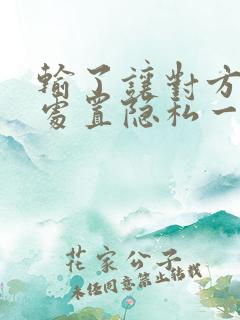 輸了讓對方
處置隐私一
花家公子
未经同意禁止转载